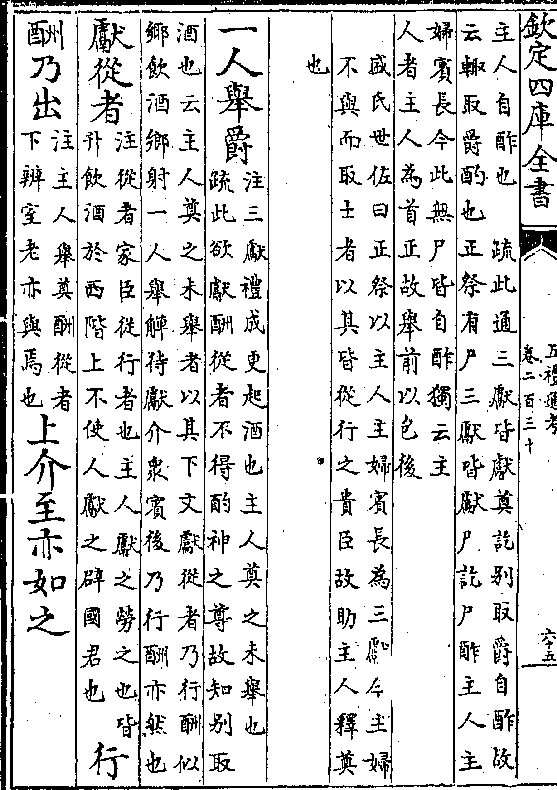 欽定四庫全書
五禮通考
卷二百三十
六十五
主人自酢也 疏此通三獻皆獻奠訖别取爵自酢故
云輙取爵酌也正祭有尸三獻皆獻尸訖尸酢主人主
婦賓長今此無尸皆自酢獨云主
人者主人為首正故舉前以包後
盛氏世佐曰正祭以主人主婦賓長為三獻今主婦
不與而取士者以其皆從行之貴臣故助主人釋奠
也
一人舉爵
注三獻禮成更起酒也主人奠之未舉也
疏此欲獻酬從者不得酌神之尊故知别取
酒也云主人奠之未舉者以其下文獻從者乃行酬似
鄉飲酒鄉射一人舉觶待獻介衆賓後乃行酬亦然也
獻從者
注從者家臣從行者也主人獻之勞之也皆
升飲酒於西階上不使人獻之辟國君也
行
酬乃出
注主人舉奠酬從者
下辨室老亦與焉也
上介至亦如之